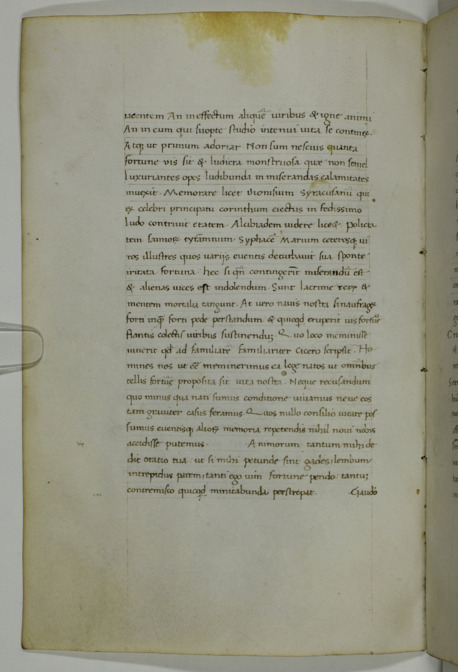 uentem An in effectum aliquē uiribus & igne animi
An in eum qui suopte studio in tenui uita se contineṭ.
Atq; ut primum adoriar Non sum nescius quanta
fortune uis sit & ludicra monstruosa quæ non semel
luxuriantes opes ludibunda in miserandas calamitates
inuexit. Memorare licet Dionisium Syracusanū qui
ex celebri principatu corinthum eiectus in fedissimo
ludo contriuit etatem. Alcibiadem uidere licet. Policra
tem samioꝝ tyrannum. Syphacē Marium ceterosq; ui
ros illustres quos varijs euentis deturbauit sua sponte
irritata fortuna. hec si qn̄ contingerīt miserandū ēst
& alienas uices est indolendum. Sunt lacrime reꝝ &
mentem mortalia tangunt. At uero nauis nostra si naufraget
forti inq̄ forti pede perstandum & quicqd eruperit uis fortūe
flantis colectis uiribus sustinendū; Quo loco meminisse
iuuerit qd ad familiarē familiariter Cicero scripsit. Ho
mines nos ut eē meminerimus ea lege natos ut omnibus
tellis fortūe proposita sit uita nostra. Neque recusandum
quo minus qua nati sumus conditione uiuamus neue eos
tam grauiter casus feramus. Quos nullo consilio uitare pos
sumus euentisq; alioꝝ memoria repetendis nihil noui nobis
accidisse putemus. Animorum tantum mihi de
dit oratio tua ut si mihi petunde sint gades lembum
intrepidus petem. tanti ego uim fortune pendo. tantū;
contremisco quicqd minitabunda perstrepat. Claudo